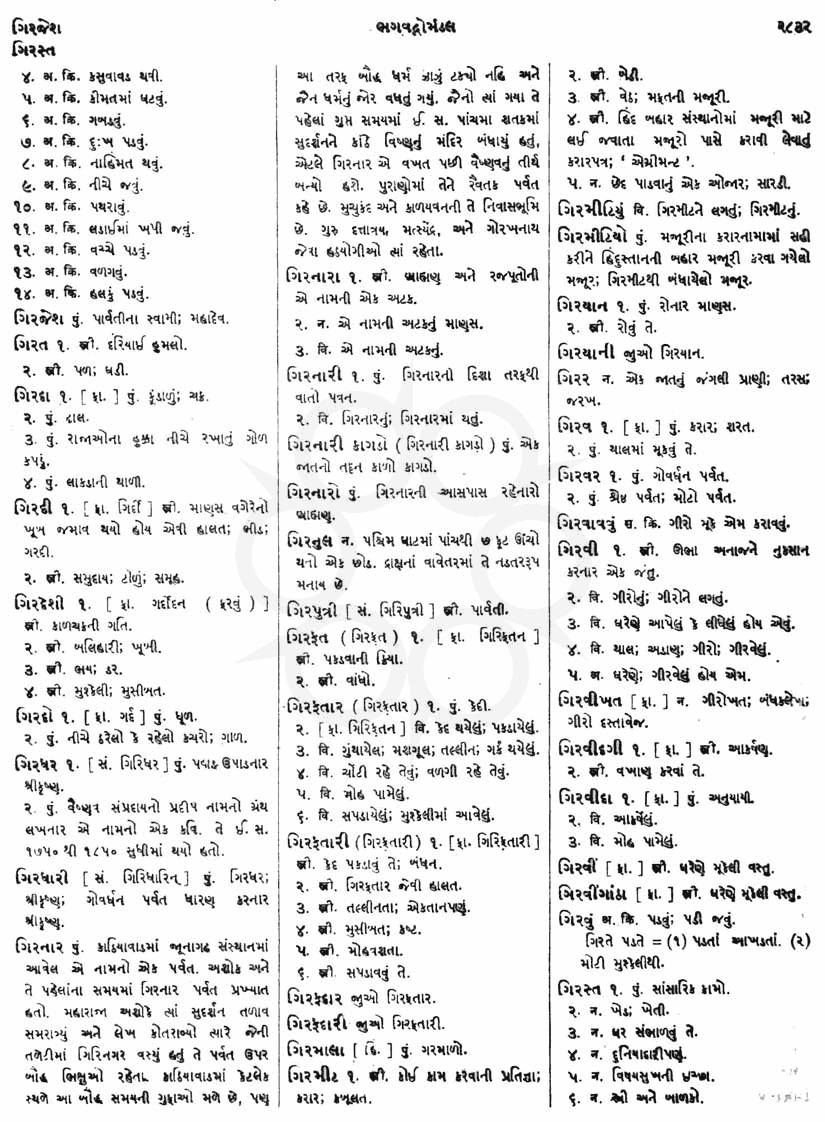 ગિરજેશ
ભગવદ્ગોમંડલ
૨૮૩૨
ગિરસ્ત
૪. અ. ક્રિ. કસુવાવડ થવી.
૫. અ. ક્રિ. કીમતમાં ઘટવું.
૬. અ. ક્રિ. ગબડવું.
૭. અ. ક્રિ. દુઃખ પડવું.
૮. અ. ક્રિ. નાહિમત થવું.
૯. અ. ક્રિ. નીચે જવું.
૧૦. અ. ક્રિ. પથરાવું.
૧૧. અ. ક્રિ. લડાઈમાં ખપી જવું.
૧૨. અ. ક્રિ. વચ્ચે પડવું.
૧૩. અ. ક્રિ. વળગવું.
૧૪. અ. ક્રિ. હલકું પડવું.
ગિરજેશ પું. પાર્વતીના સ્વામી; મહાદેવ.
ગિરત ૧. સ્ત્રી. દરિયાઈ હુમલો.
૨. સ્ત્રી. પળ; ઘડી.
ગિરદા ૧. [ ફા. ] પું. કૂંડાળું; ચક્ર.
૨. પું. ઢાલ.
૩. પું. રાજાઓના હુક્કા નીચે રખાતું ગોળ
કપડું.
૪. પું. લાકડાની થાળી.
ગિરદી ૧. [ ફા. ગિર્દી ] સ્ત્રી. માણસ વગેરેનો
ખૂબ જમાવ થયો હોય એવી હાલત; ભીડ;
ગરદી.
૨. સ્ત્રી. સમુદાય; ટોળું; સમૂહ.
ગિરદેશી ૧. [ ફા. ગર્દીદન ( ફરવું ) ]
સ્ત્રી. કાળચક્રની ગતિ.
૨. સ્ત્રી. બલિહારી; ખૂબી.
૩. સ્ત્રી. ભય; ડર.
૪. સ્ત્રી. મુશ્કેલી; મુસીબત.
ગિરદો ૧. [ ફા. ગર્દ ] પું. ધૂળ.
૨. પું. નીચે ઠરેલો કે રહેલો કચરો; ગાળ.
ગિરધર ૧. [ સં. ગિરિધર ] પું. પહાડ ઉપાડનાર
શ્રીકૃષ્ણ.
૨. પું. વૈષ્ણવ સંપ્રદાયનો પ્રદીપ નામનો ગ્રંથ
લખનાર એ નામનો એક કવિ. તે ઈ. સ.
૧૭૫૦ થી ૧૮૫૦ સુધીમાં થયો હતો.
ગિરધારી [ સં. ગિરિધારિન્ ] પું. ગિરધર;
શ્રીકૃષ્ણ; ગોવર્ધન પર્વત ધારણ કરનાર
શ્રીકૃષ્ણ.
ગિરનાર પું. કાઠિયાવાડમાં જૂનાગઢ સંસ્થાનમાં
આવેલ એ નામનો એક પર્વત. અશોક અને
તે પહેલાંના સમયમાં ગિરનાર પર્વત પ્રખ્યાત
હતો. મહારાજા અશોકે ત્યાં સુદર્શન તળાવ
સમરાવ્યું અને લેખ કોતરાવ્યો ત્યારે જેની
તળેટીમાં ગિરિનગર વસ્યું હતું તે પર્વત ઉપર
બૌદ્ધ ભિક્ષુઓ રહેતા. કાઠિયાવાડમાં કેટલેક
સ્થળે આ બૌદ્ધ સમયની ગુફાઓ મળે છે, પણ
આ તરફ બૌદ્ધ ધર્મ ઝાઝું ટક્યો નહિ અને
જૈન ધર્મનું જોર વધતું ગયું. જૈનો ત્યાં ગયા તે
પહેલાં ગુપ્ત સમયમાં ઈ. સ. પાંચમા શતકમાં
સુદર્શનને કાંઠે વિષ્ણુનું મંદિર બંધાયું હતું,
એટલે ગિરનાર એ વખત પછી વૈષ્ણવનું તીર્થ
બન્યો હશે. પુરાણોમાં તેને રૈવતક પર્વત
કહે છે. મુચુકંદ અને કાળયવનની તે નિવાસભૂમિ
છે. ગુરુ દત્તાત્રય, મત્સ્યેંદ્ર, અને ગોરખનાથ
જેવા હઠયોગીઓ ત્યાં રહેતા.
ગિરનારા ૧. સ્ત્રી. બ્રાહ્મણ અને રજપૂતોની
એ નામની એક અટક.
૨. ન. એ નામની અટકનું માણસ.
૩. વિ. એ નામની અટકનું.
ગિરનારી ૧. પું. ગિરનારનો દિશા તરફથી
વાતો પવન.
૨. વિ. ગિરનારનું; ગિરનારમાં થતું.
ગિરનારી કાગડો ( ગિરનારી કાગડો ) પું. એક
જાતનો તદ્દન કાળો કાગડો.
ગિરનારો પું. ગિરનારની આસપાસ રહેનારો
બ્રાહ્મણ.
ગિરનુલ ન. પશ્ચિમ ઘાટમાં પાંચથી ૭ ફૂટ ઊંચો
થનો એક છોડ. દ્રાક્ષનાં વાવેતરમાં તે નડતરરૂપ
મનાય છે.
ગિરપુત્રી [ સં. ગિરિપુત્રી ] સ્ત્રી. પાર્વતી.
ગિરફત ( ગિરફ્ત ) ૧. [ ફા. ગિરિફ્તન ]
સ્ત્રી. પકડવાની ક્રિયા.
૨. સ્ત્રી. વાંધો.
ગિરફતાર ( ગિરફ્તાર ) ૧. પું. કેદી.
૨. [ ફા. ગિરિફ્તન ] વિ. કેદ થયેલું; પકડાયેલું.
૩. વિ. ગુંથાયેલ; મશગૂલ; તલ્લીન; ગર્ક થયેલું.
૪. વિ. ચોંટી રહે તેવું; વળગી રહે તેવું.
૫. વિ. મોહ પામેલું.
૬. વિ. સપડાયેલું; મુશ્કેલીમાં આવેલું.
ગિરફતારી (ગિરફ્તારી) ૧. [ફા. ગિરિફ્તારી]
સ્ત્રી. કેદ પકડાવું તે; બંધન.
૨. સ્ત્રી. ગિરફતાર જેવી હાલત.
૩. સ્ત્રી. તલ્લીનતા; એકતાનપણું.
૪. સ્ત્રી. મુસીબત; કષ્ટ.
૫. સ્ત્રી. મોહવશતા.
૬. સ્ત્રી. સપડાવવું તે.
ગિરફદાર જુઓ ગિરફતાર.
ગિરફદારી જુઓ ગિરફતારી.
ગિરમાલા [ હિં. ] પું. ગરમાળો.
ગિરમીટ ૧. સ્ત્રી. કોઈ કામ કરવાની પ્રતિજ્ઞા;
કરાર; કબૂલત.
૨. સ્ત્રી. બેડી.
૩. સ્ત્રી. વેઠ; મફતની મજૂરી.
૪. સ્ત્રી. હિંદ બહાર સંસ્થાનોમાં મજૂરી માટે
લઈ જવાતા મજૂરો પાસે કરાવી લેવાતું
કરારપત્ર; ' એગ્રીમન્ટ '.
૫. ન. છેદ પાડવાનું એક ઓજાર; સારડી.
ગિરમીટિયું વિ. ગિરમીટને લગતું; ગિરમીટનું.
ગિરમીટિયો પું. મજૂરીના કરારનામામાં સહી
કરીને હિંદુસ્તાનની બહાર મજૂરી કરવા ગયેલો
મજૂર; ગિરમીટથી બંધાયેલો મજૂર.
ગિરયાન ૧. પું. રોનાર માણસ.
૨. સ્ત્રી. રોવું તે.
ગિરયાની જુઓ ગિરયાન.
ગિરર ન. એક જાતનું જંગલી પ્રાણી; તરસ;
જરખ.
ગિરવ ૧. [ ફા. ] પું. કરાર; શરત.
૨. પું. થાલમાં મૂકવું તે.
ગિરવર ૧. પું. ગોવર્ધન પર્વત.
૨. પું. શ્રેષ્ઠ પર્વત; મોટો પર્વત.
ગિરવાવવું સ. ક્રિ. ગીરો મૂકે એમ કરાવવું.
ગિરવી ૧. સ્ત્રી. ઊભા અનાજને નુકસાન
કરનાર એક જંતુ.
૨. વિ. ગીરોનું; ગીરોને લગતું.
૩. વિ. ઘરેણે આપેલું કે લીધેલું હોય એવું.
૪. વિ. થાલ; અડાણ; ગીરો; ગીરવેલું.
૫. અ. ઘરેણે; ગીરવેલું હોય એમ.
ગિરવીખત [ ફા. ] ન. ગીરોખત; બંધકલેખ;
ગીરો દસ્તાવેજ.
ગિરવીદગી ૧. [ ફા. ] સ્ત્રી. આકર્ષણ.
૨. સ્ત્રી. વખાણ કરવાં તે.
ગિરવીદા ૧. [ ફા. ] પું. અનુયાયી.
૨. વિ. આકર્ષેલું.
૩. વિ. મોહ પામેલું.
ગિરવીં [ ફા. ] સ્ત્રી. ઘરેણે મૂકેલી વસ્તુ.
ગિરવીંગાંઠા [ ફા. ] સ્ત્રી. ઘરેણે મૂકેલી વસ્તુ.
ગિરવું અ. ક્રિ. પડવું; પડી જવું.
ગિરતે પડતે = (૧) પડતાં આખડતાં. (૨)
મોટી મુશ્કેલીથી.
ગિરસ્ત ૧. પું. સાંસારિક કામો.
૨. ન. ખેડ; ખેતી.
૩. ન. ઘર સંભાળવું તે.
૪. ન. દુનિયાદારીપણું.
૫. ન. વિષયસુખની ઇચ્છા.
૬. ન. સ્ત્રી અને બાળકો.